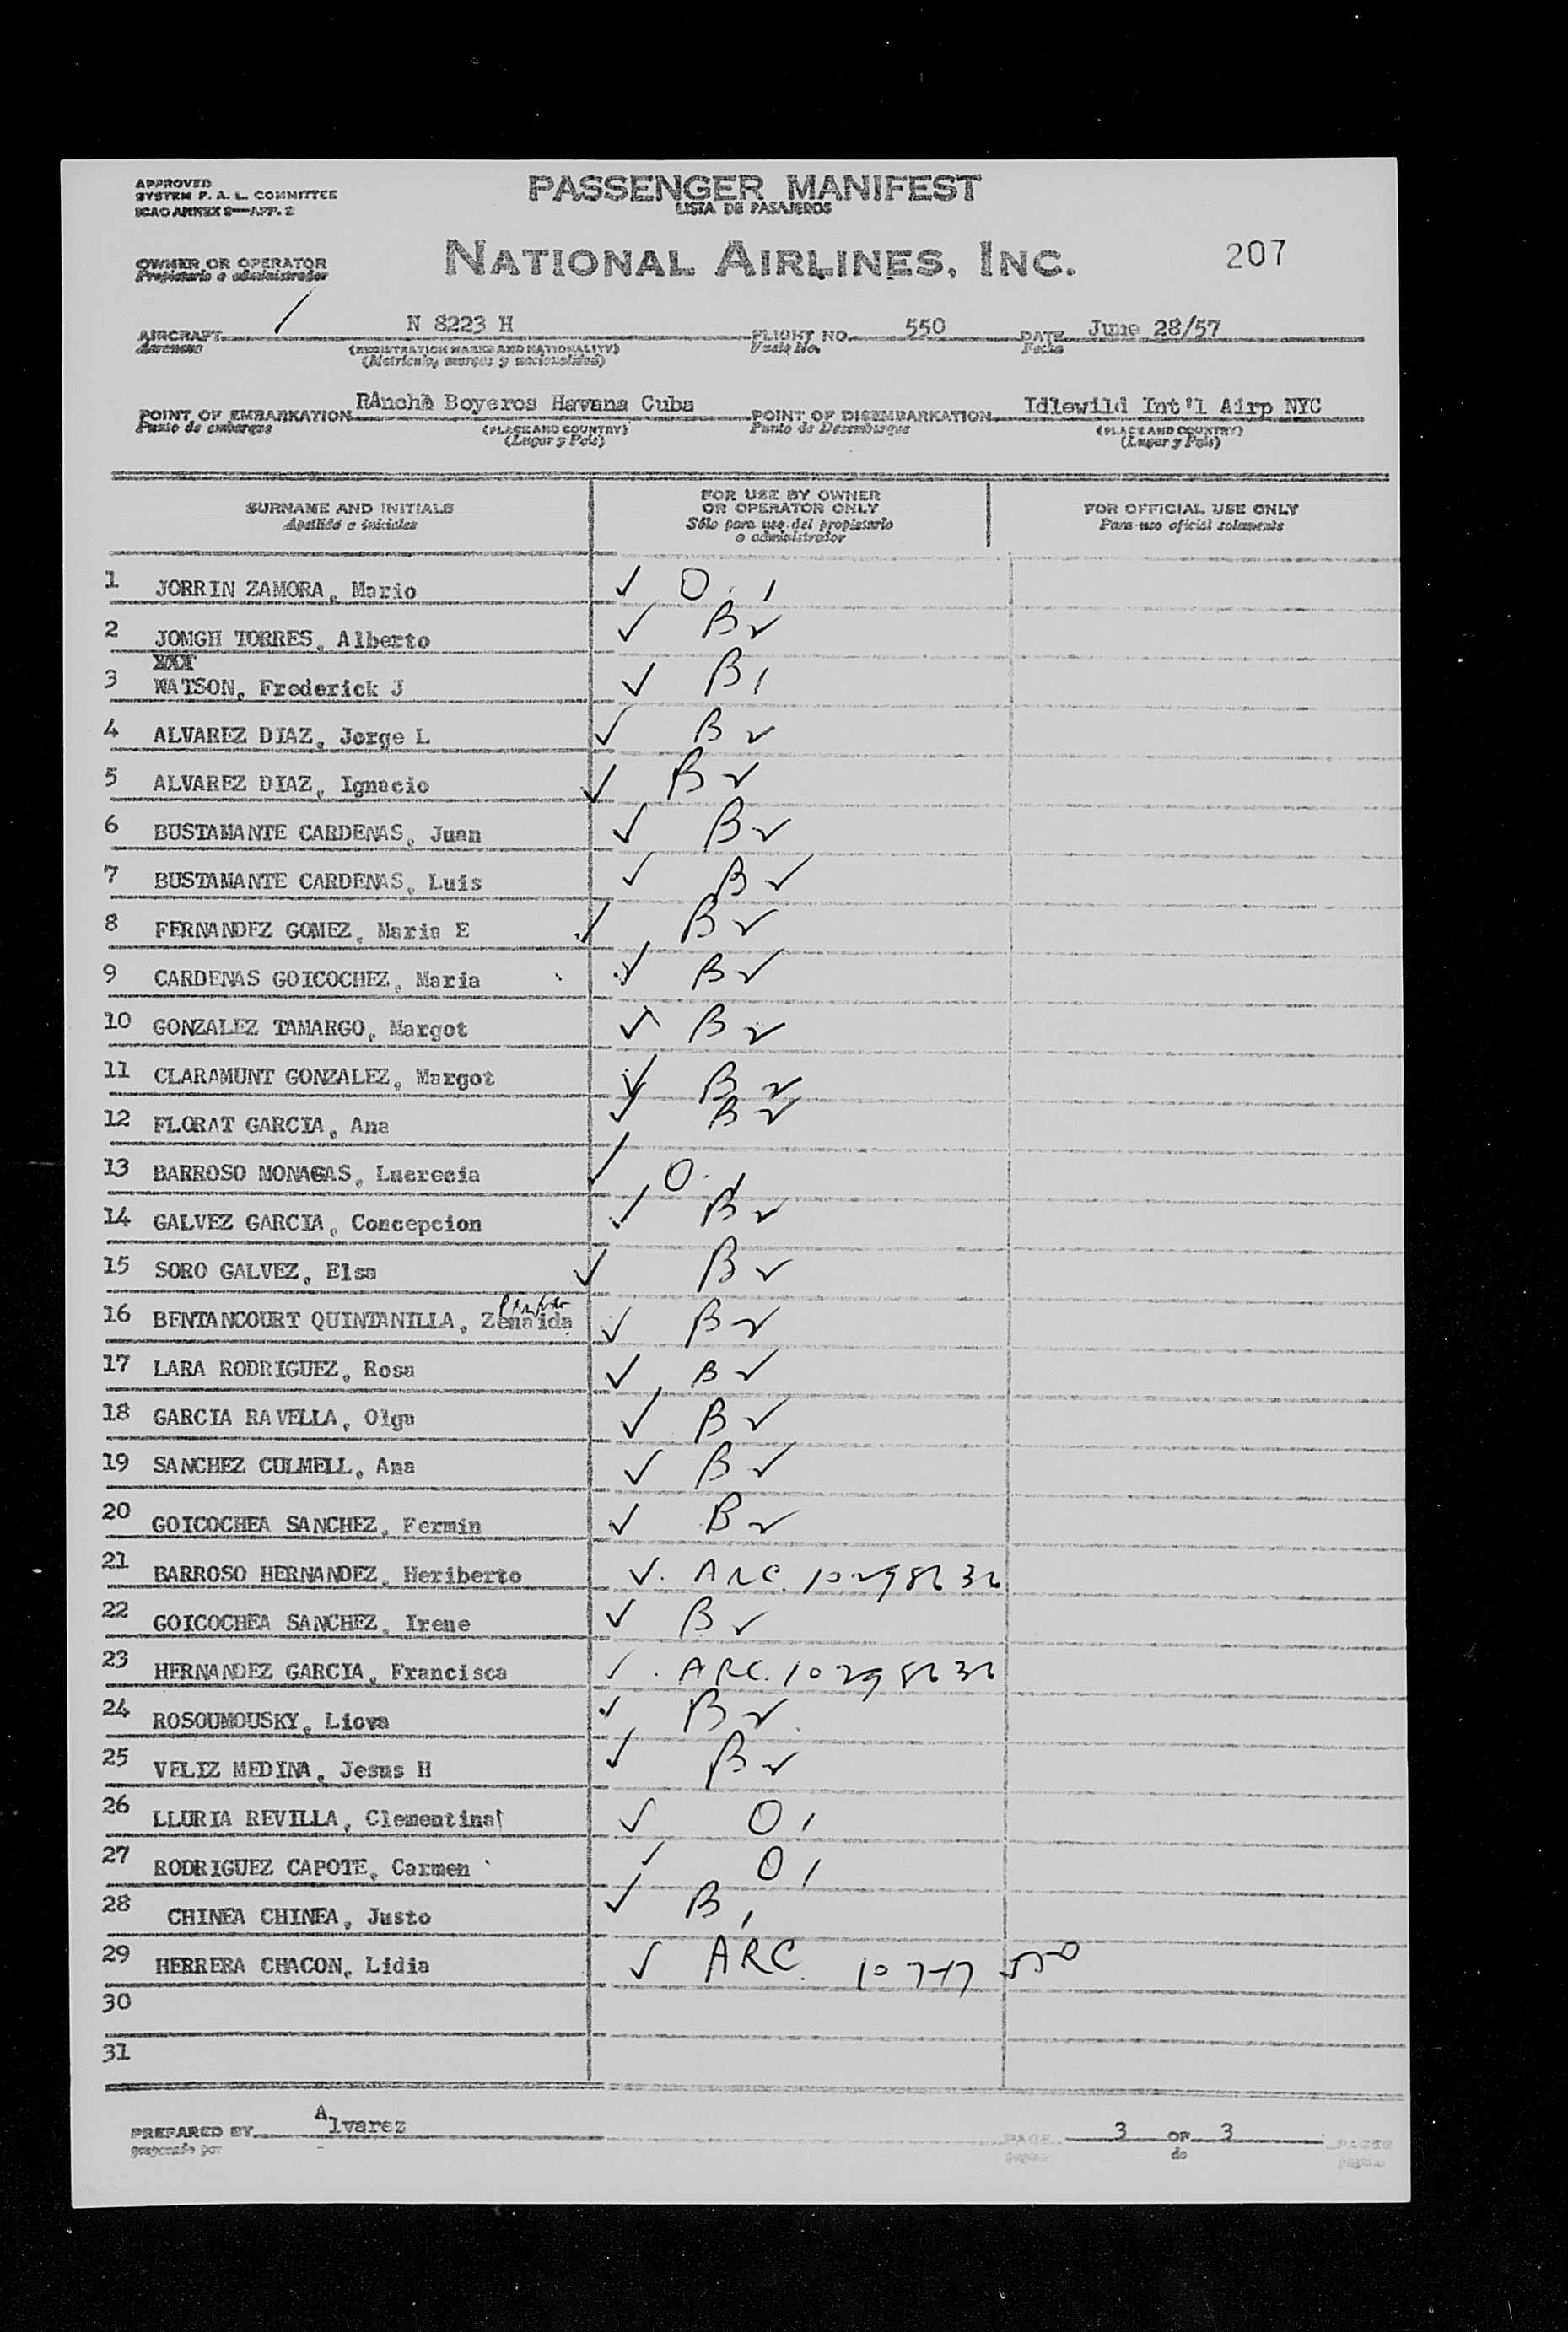 APPROVED
SYSTEM F. A. L. COMMITTEE
ICAO ANNEX 9—APP. 2
PASSENGER MANIFEST
LISTA DE PASAJEROS
OWNER OR OPERATOR
Propietario o administrador
NATIONAL AIRLINES, INC.
207
AIRCRAFT N 8223 H FLIGHT NO. 550 DATE June 28/57
Aeronave (REGISTRATION MARKS AND NATIONALITY) Vuelo No. Fecha
(Matricula, marcas y nacionalidad)
POINT OF EMBARKATION RAncho Boyeros Havana Cuba POINT OF DISEMBARKATION Idlewild Int'l Airp NYC
Punto de embarque (PLACE AND COUNTRY) Punto de Desembarque (PLACE AND COUNTRY)
(Lugar y País) (Lugar y País)
SURNAME AND INITIALS
Apellido e iniciales
FOR USE BY OWNER
OR OPERATOR ONLY
Sólo para uso del propietario
o administrador
FOR OFFICIAL USE ONLY
Para uso oficial solamente
1 JORRIN ZAMORA, Mario ✓ O
2 JOMGH TORRES, Alberto ✓ B ✓
XXX
3 WATSON, Frederick J ✓ B
4 ALVAREZ DIAZ, Jorge L ✓ B ✓
5 ALVAREZ DIAZ, Ignacio ✓ B ✓
6 BUSTAMANTE CARDENAS, Juan ✓ B ✓
7 BUSTAMANTE CARDENAS, Luis ✓ B ✓
8 FERNANDEZ GOMEZ, Maria E ✓ B ✓
9 CARDENAS GOICOCHEZ, Maria ✓ B ✓
10 GONZALEZ TAMARGO, Margot ✓ B ✓
11 CLARAMUNT GONZALEZ, Margot ✓ B ✓
12 FLORAT GARCIA, Ana ✓ B ✓
13 BARROSO MONAGAS, Lucrecia ✓ O
14 GALVEZ GARCIA, Concepcion ✓ B ✓
15 SORO GALVEZ, Elsa ✓ B ✓
16 BENTANCOURT QUINTANILLA, Zenaida ✓ B ✓
17 LARA RODRIGUEZ, Rosa ✓ B ✓
18 GARCIA RAVELLA, Olga ✓ B ✓
19 SANCHEZ CULMELL, Ana ✓ B ✓
20 GOICOCHEA SANCHEZ, Fermin ✓ B ✓
21 BARROSO HERNANDEZ, Heriberto ✓ ARC.
22 GOICOCHEA SANCHEZ, Irene ✓ B ✓
23 HERNANDEZ GARCIA, Francisca ✓ ARC.
24 ROSOUMOUSKY, Liova ✓ B ✓
25 VELIZ MEDINA, Jesus H ✓ B ✓
26 LLURIA REVILLA, Clementina ✓ O
27 RODRIGUEZ CAPOTE, Carmen ✓ O
28 CHINEA CHINEA, Justo ✓ B
29 HERRERA CHACON, Lidia ✓ ARC.
30
31
PREPARED BY Alvarez PAGE 3 OF 3 PAGES
preparado por pagina de paginas